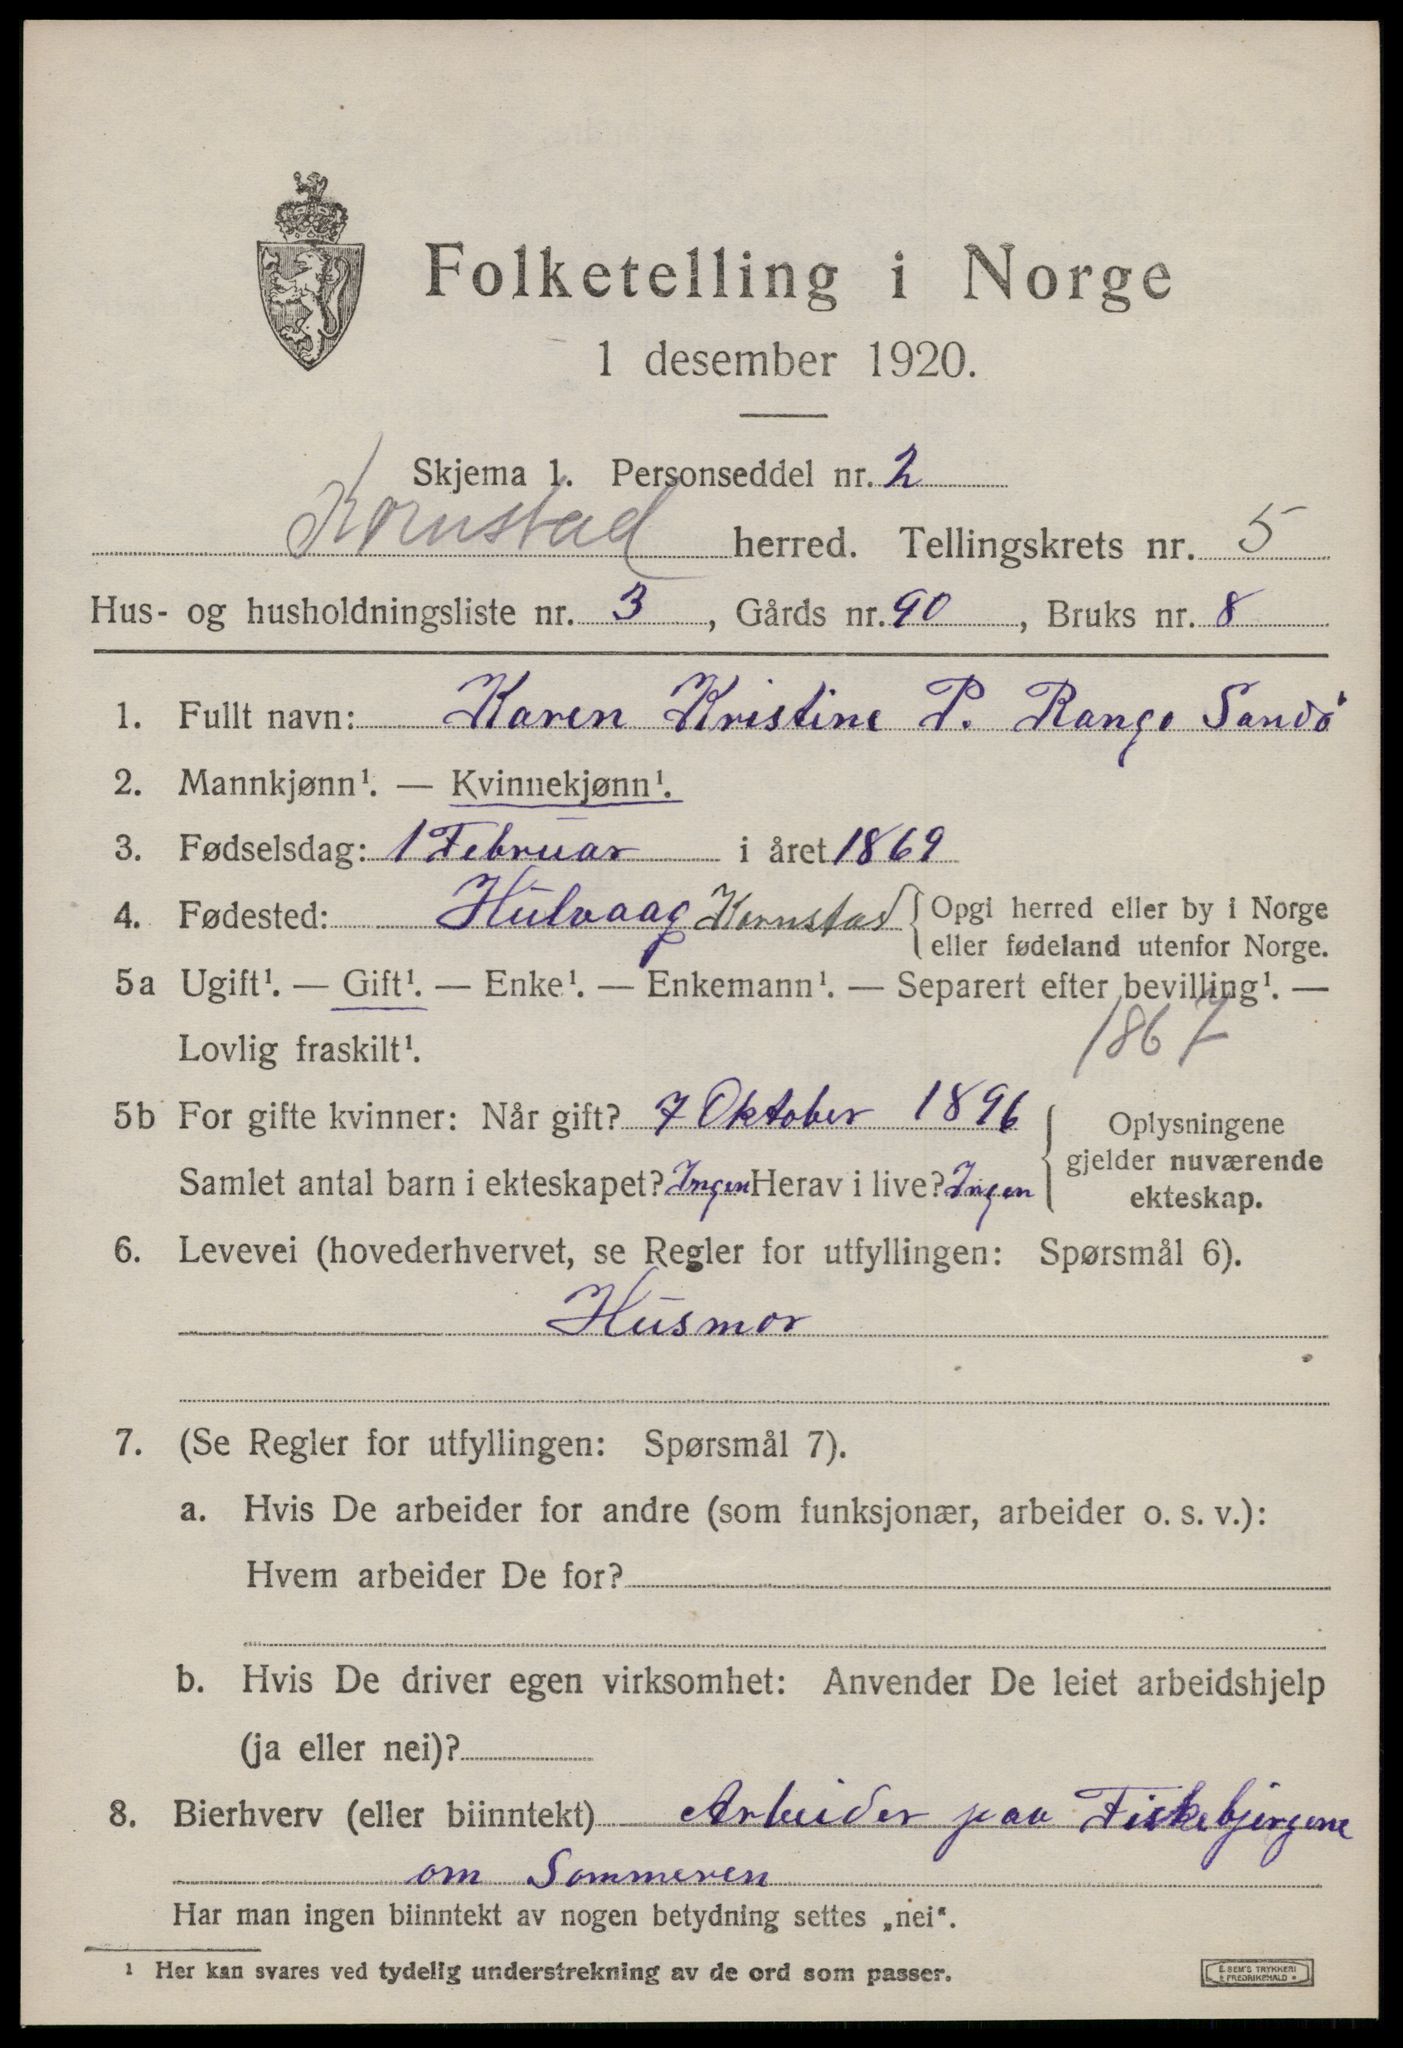 Folketelling i Norge
1 desember 1920.
Skjema 1. Personseddel nr. 2
Kornstad herred. Tellingskrets nr. 5
Hus- og husholdningsliste nr. 3, Gårds nr. 90, Bruks nr. 8
1. Fullt navn: Karen Kristine P. Range Sandö
2. Mannkjønn¹. — Kvinnekjønn¹.
3. Fødselsdag: 1 Februar i året 1869
4. Fødested: Hulvaag Kornstad { Opgi herred eller by i Norge
eller fødeland utenfor Norge.
5a Ugift¹. — Gift¹. — Enke¹. — Enkemann¹. — Separert efter bevilling¹. —
Lovlig fraskilt¹. 1867
5b For gifte kvinner: Når gift? 7 Oktober 1896
Samlet antal barn i ekteskapet? Ingen Herav i live? Ingen
Oplysningene
gjelder nuværende
ekteskap.
6. Levevei (hovederhvervet, se Regler for utfyllingen: Spørsmål 6).
Husmor
7. (Se Regler for utfyllingen: Spørsmål 7).
a. Hvis De arbeider for andre (som funksjonær, arbeider o. s. v.):
Hvem arbeider De for?
b. Hvis De driver egen virksomhet: Anvender De leiet arbeidshjelp
(ja eller nei)?
8. Bierhverv (eller biinntekt) Arbeider paa Fiskebjergene
om Sommeren
Har man ingen biinntekt av nogen betydning settes „nei“.
¹ Her kan svares ved tydelig understrekning av de ord som passer.
E. SEM'S TRYKKERI
FREDRIKSHALD